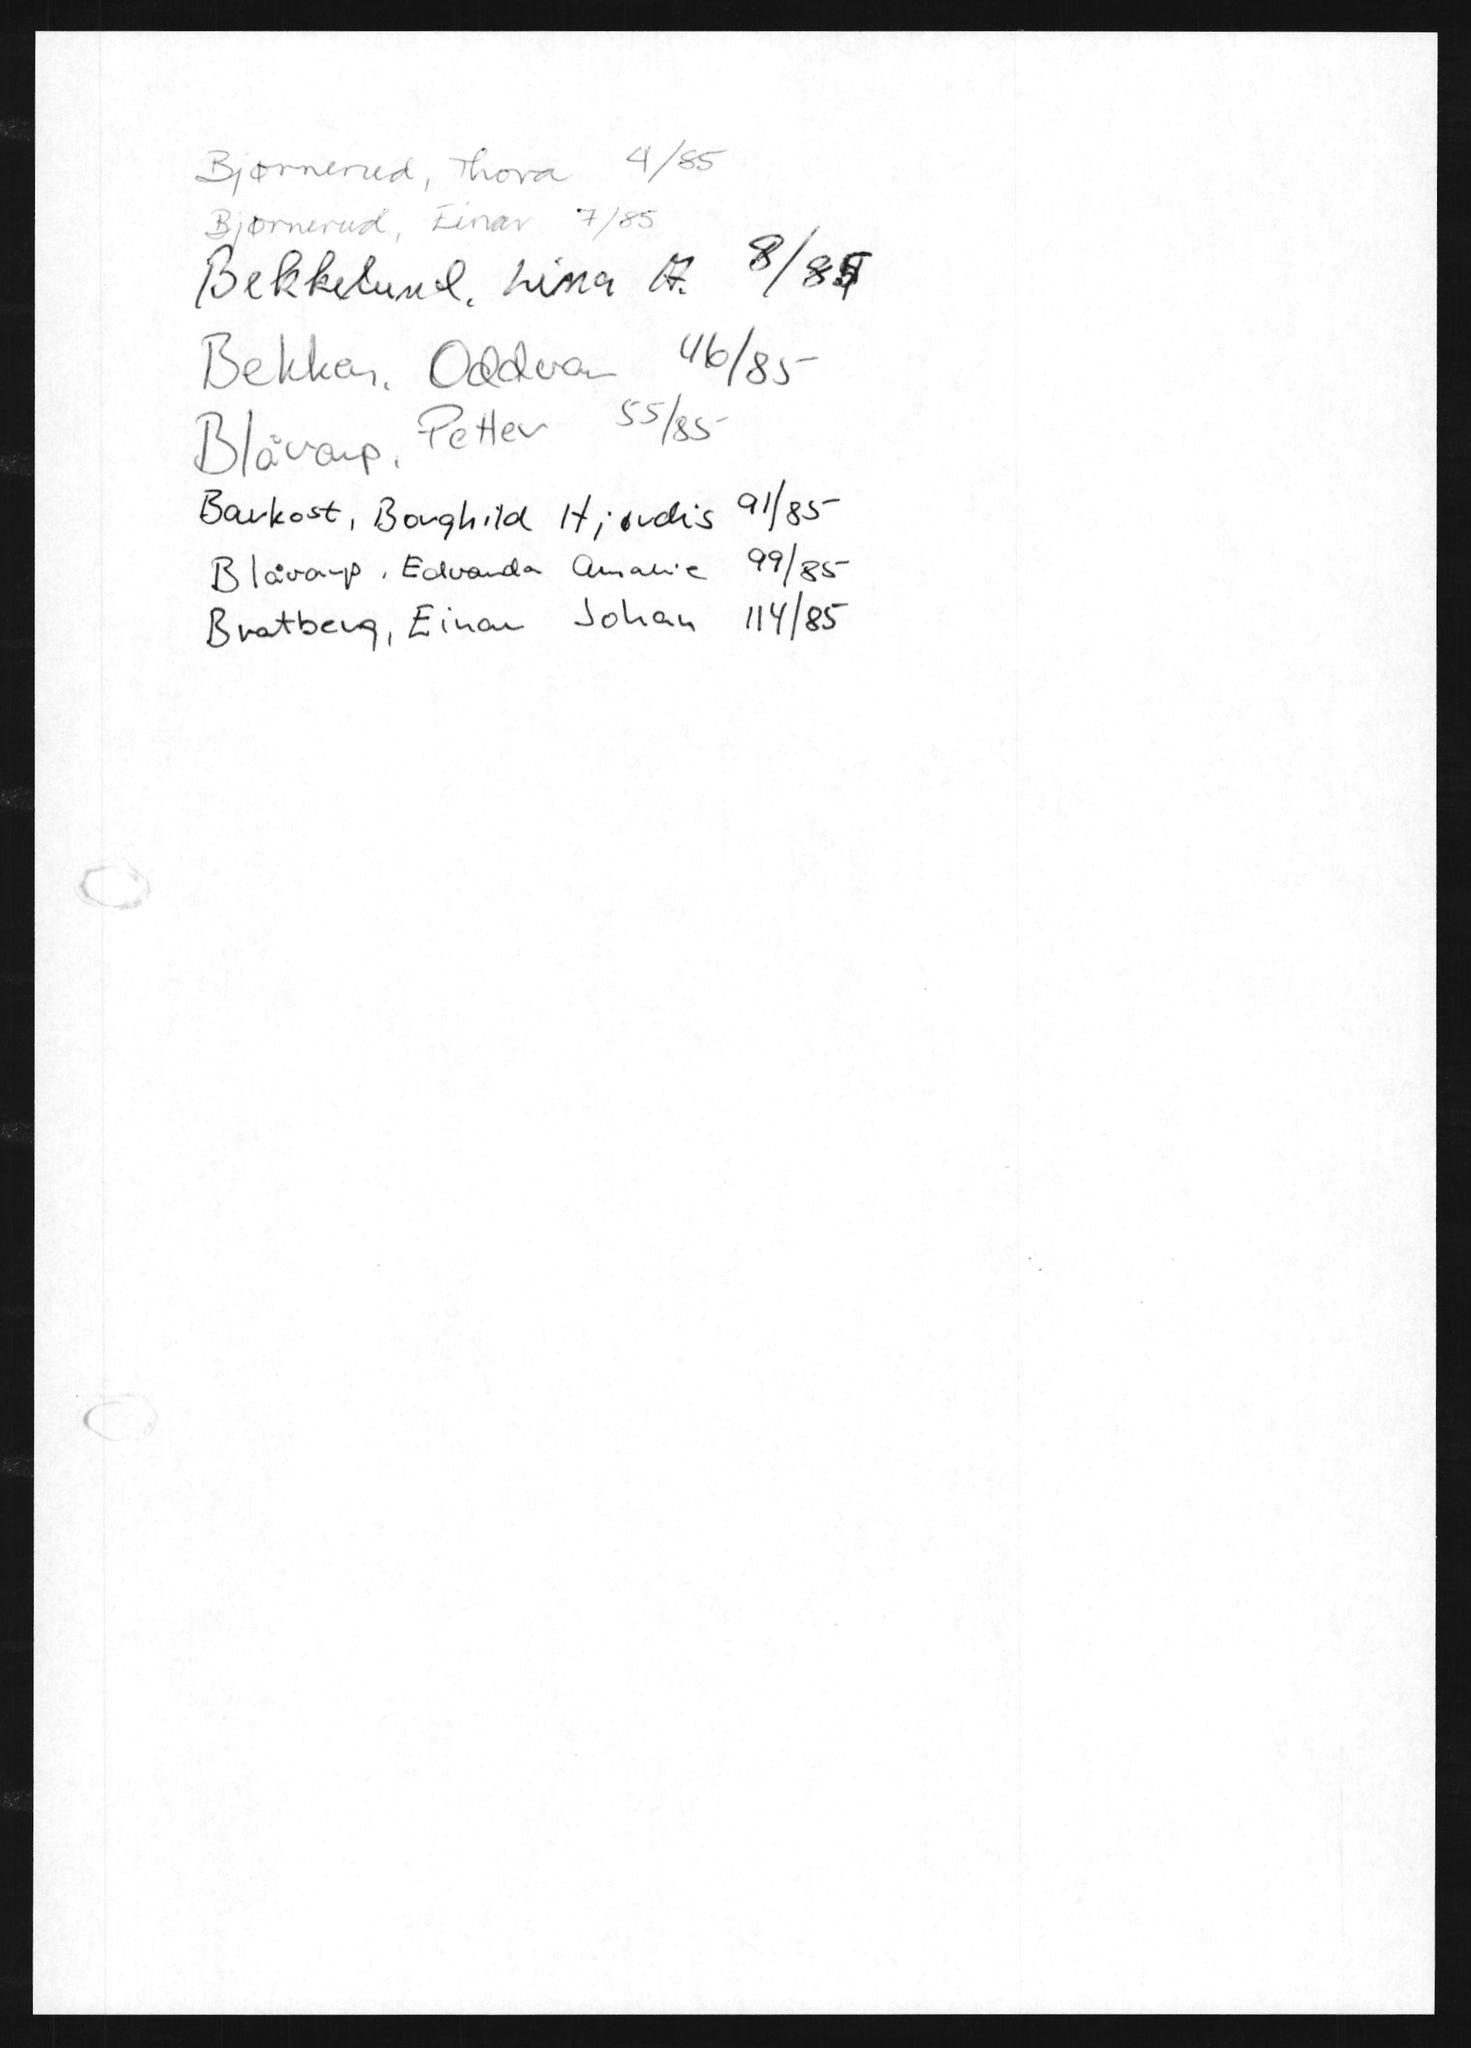 Bjørnerud, Thora 4/85
Bjørnerud, Einar 7/85
Bekkelund, Lina A. 8/85
Bekken, Oddvar 46/85
Blåvarp, Petter 55/85
Barkost, Borghild Hjørdis 91/85
Blåvarp, Edvarda Amalie 99/85
Bratberg, Einar Johan 114/85